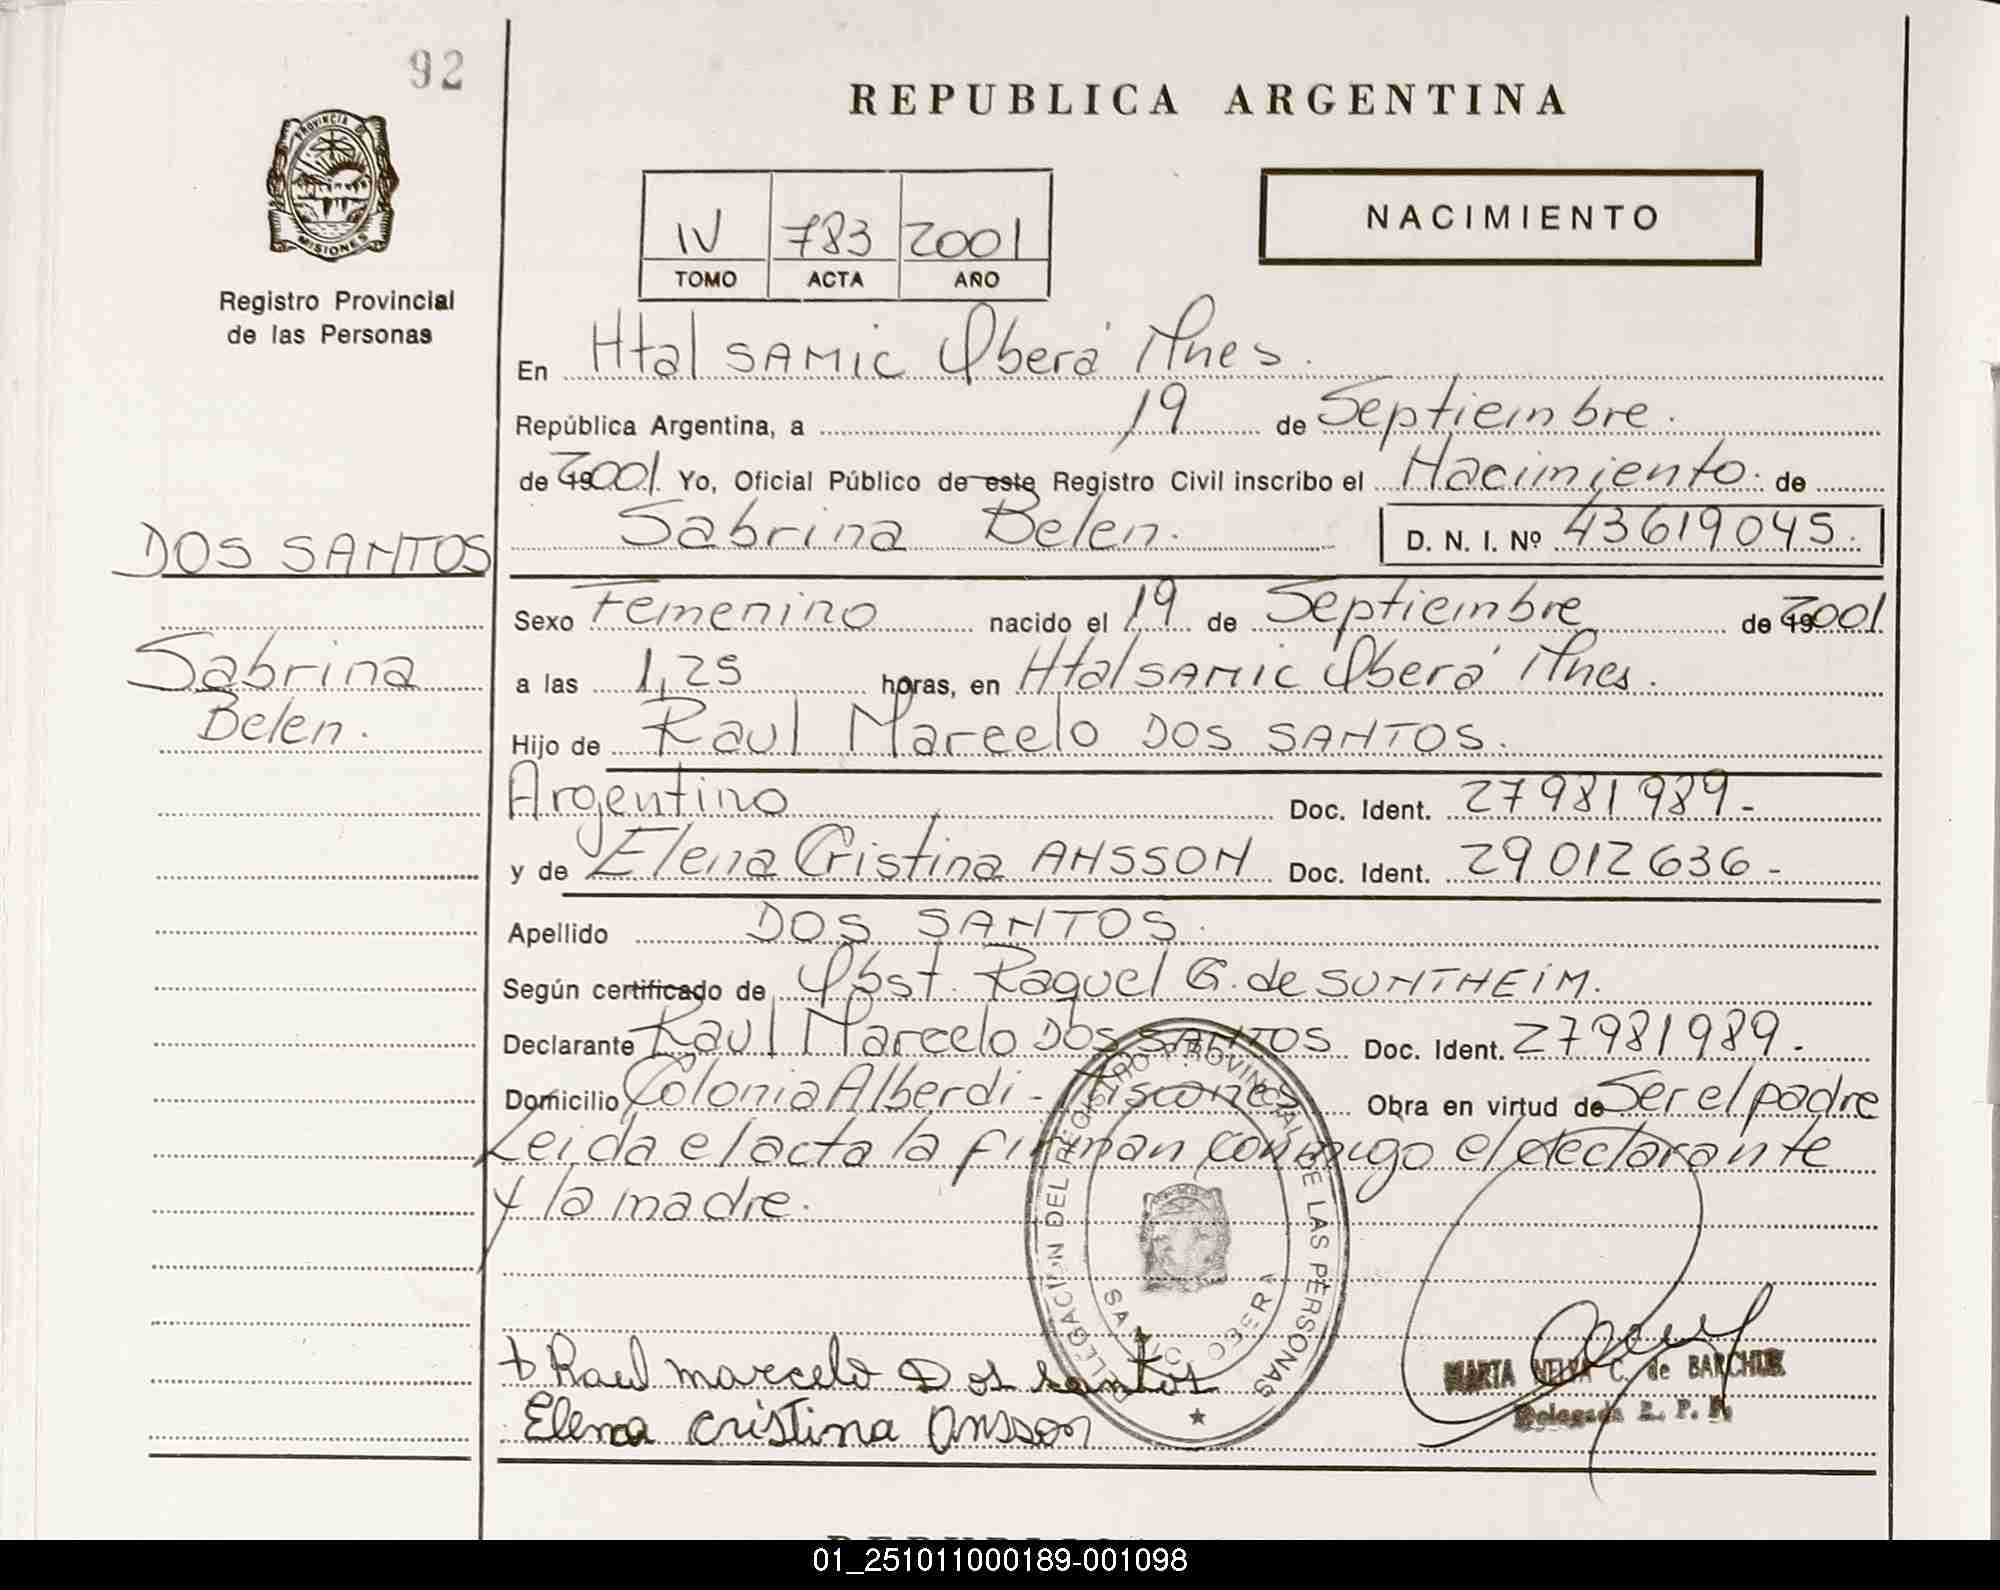 92
REPUBLICA ARGENTINA
PROVINCIA DE
MISIONES
Registro Provincial
de las Personas
IV 783 2001
TOMO ACTA AÑO
NACIMIENTO
En Htal SAMIC Oberá Mnes.
República Argentina, a 19 de Septiembre.
de 2001. Yo, Oficial Público de este Registro Civil inscribo el Nacimiento. de
Sabrina Belen. D. N. I. Nº 43619045.
DOS SANTOS
Sabrina
Belen.
Sexo Femenino nacido el 19 de Septiembre de 2001
a las 1,25 horas, en Htal SAMIC Oberá Mnes.
Hijo de Raul Marcelo DOS SANTOS.
Argentino Doc. Ident. 27981989-
y de Elena Cristina ANSSON Doc. Ident. 29012636-
Apellido DOS SANTOS.
Según certificado de Obst. Raquel G. de SUNTHEIM.
Declarante Raul Marcelo DOS SANTOS Doc. Ident. 27981989-
Domicilio Colonia Alberdi - Misiones Obra en virtud de Ser el padre
Leida el acta la firman conmigo el declarante
y la madre.
DELEGACION DEL REGISTRO PROVINCIAL DE LAS PERSONAS
SAMIC OBERA
+ Raul marcelo Dos santos
Elena cristina Ansson
MARTA NELVA C. de BARCHUK
Delegada R. P. P.
01_251011000189-001098